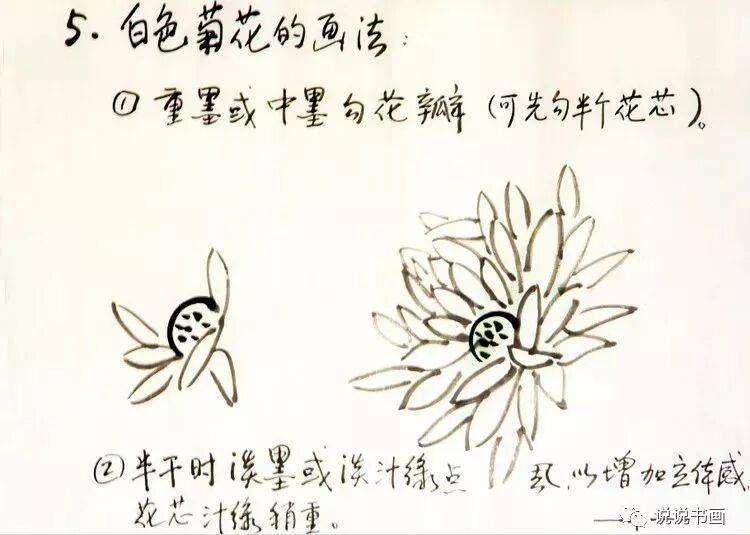 5. 白色菊花的画法:
① 重墨或中墨勾花瓣 (可先勾半个花芯)。
② 半干时淡墨或淡汁绿点 以增加立体感,
花芯汁绿稍重。
说说书画